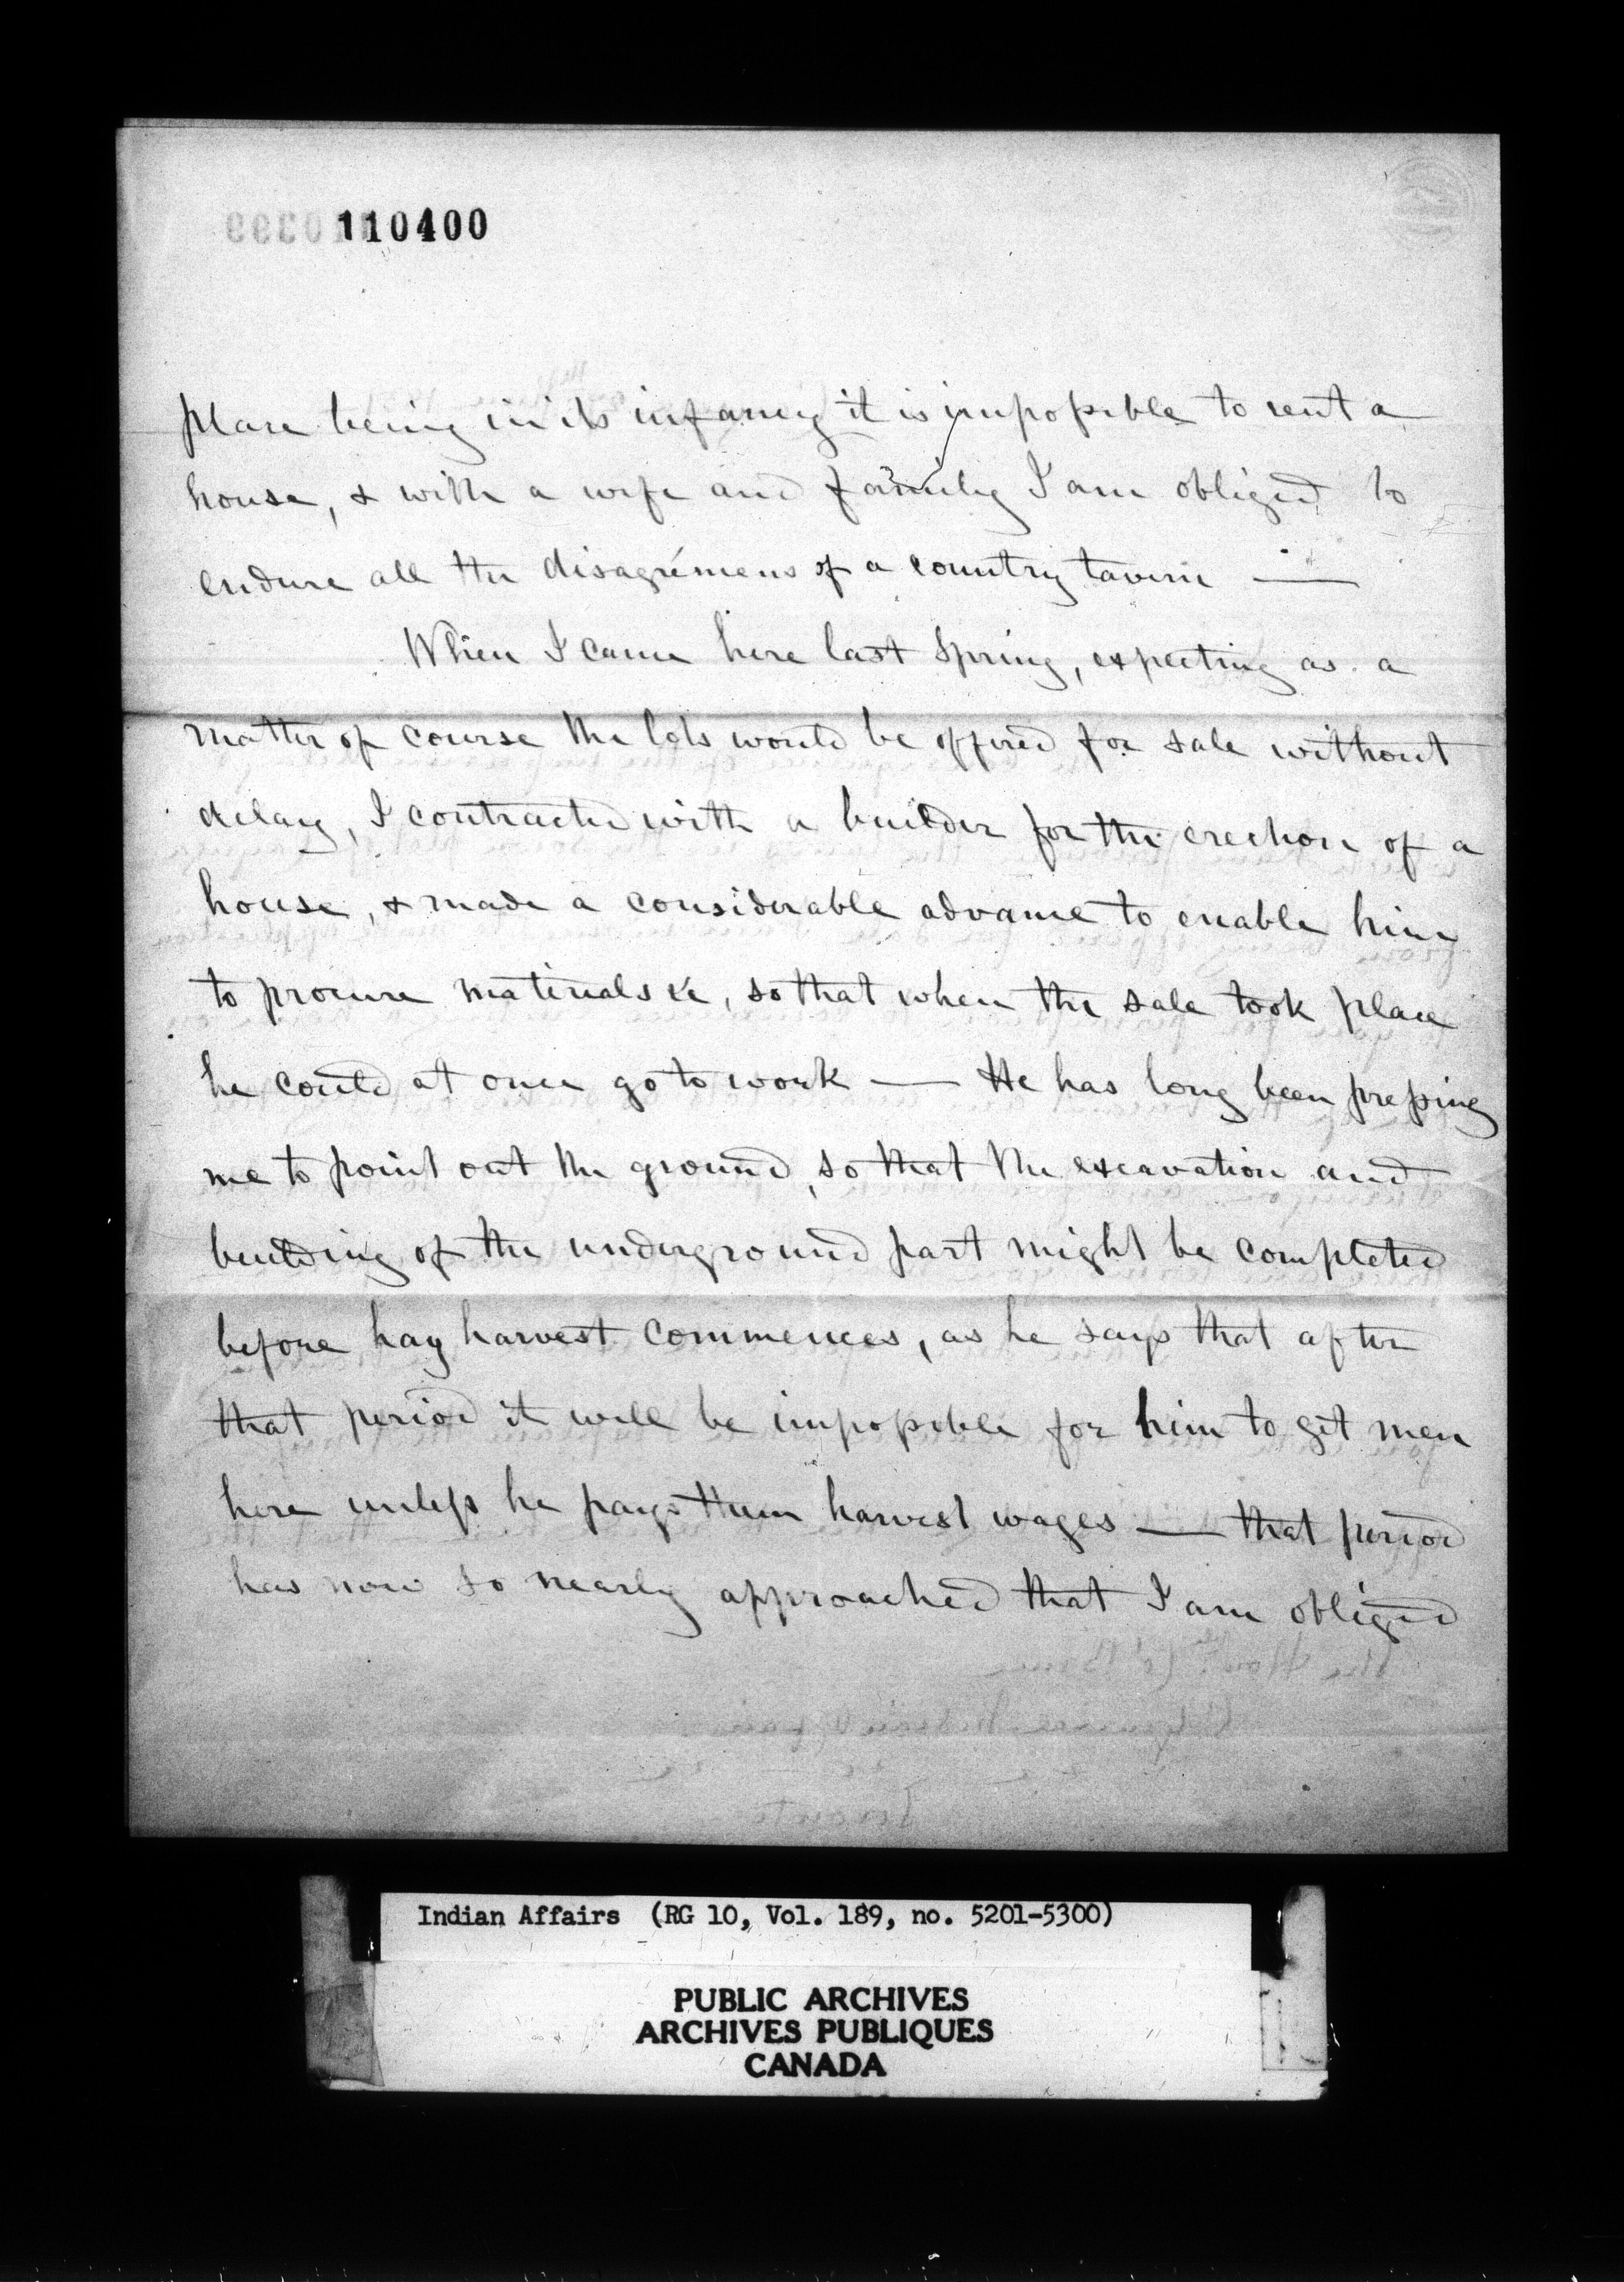 110400
place being in its infancy it is impossible to rent a
house, & with a wife and family I am obliged to
endure all the disagrémens of a country tavern —
When I came here last Spring, expecting as a
matter of course the lots would be offered for sale without
delay, I contracted with a builder for the erection of a
house, & made a considerable advance to enable him
to procure materials &c, so that when the sale took place
he could at once go to work — He has long been pressing
me to point out the ground, so that the excavation and
building of the underground part might be completed
before hay harvest commences, as he says that after
that period it will be impossible for him to get men
here unless he pays them harvest wages — that period
has now so nearly approached that I am obliged
Indian Affairs (RG 10, Vol. 189, no. 5201-5300)
PUBLIC ARCHIVES
ARCHIVES PUBLIQUES
CANADA